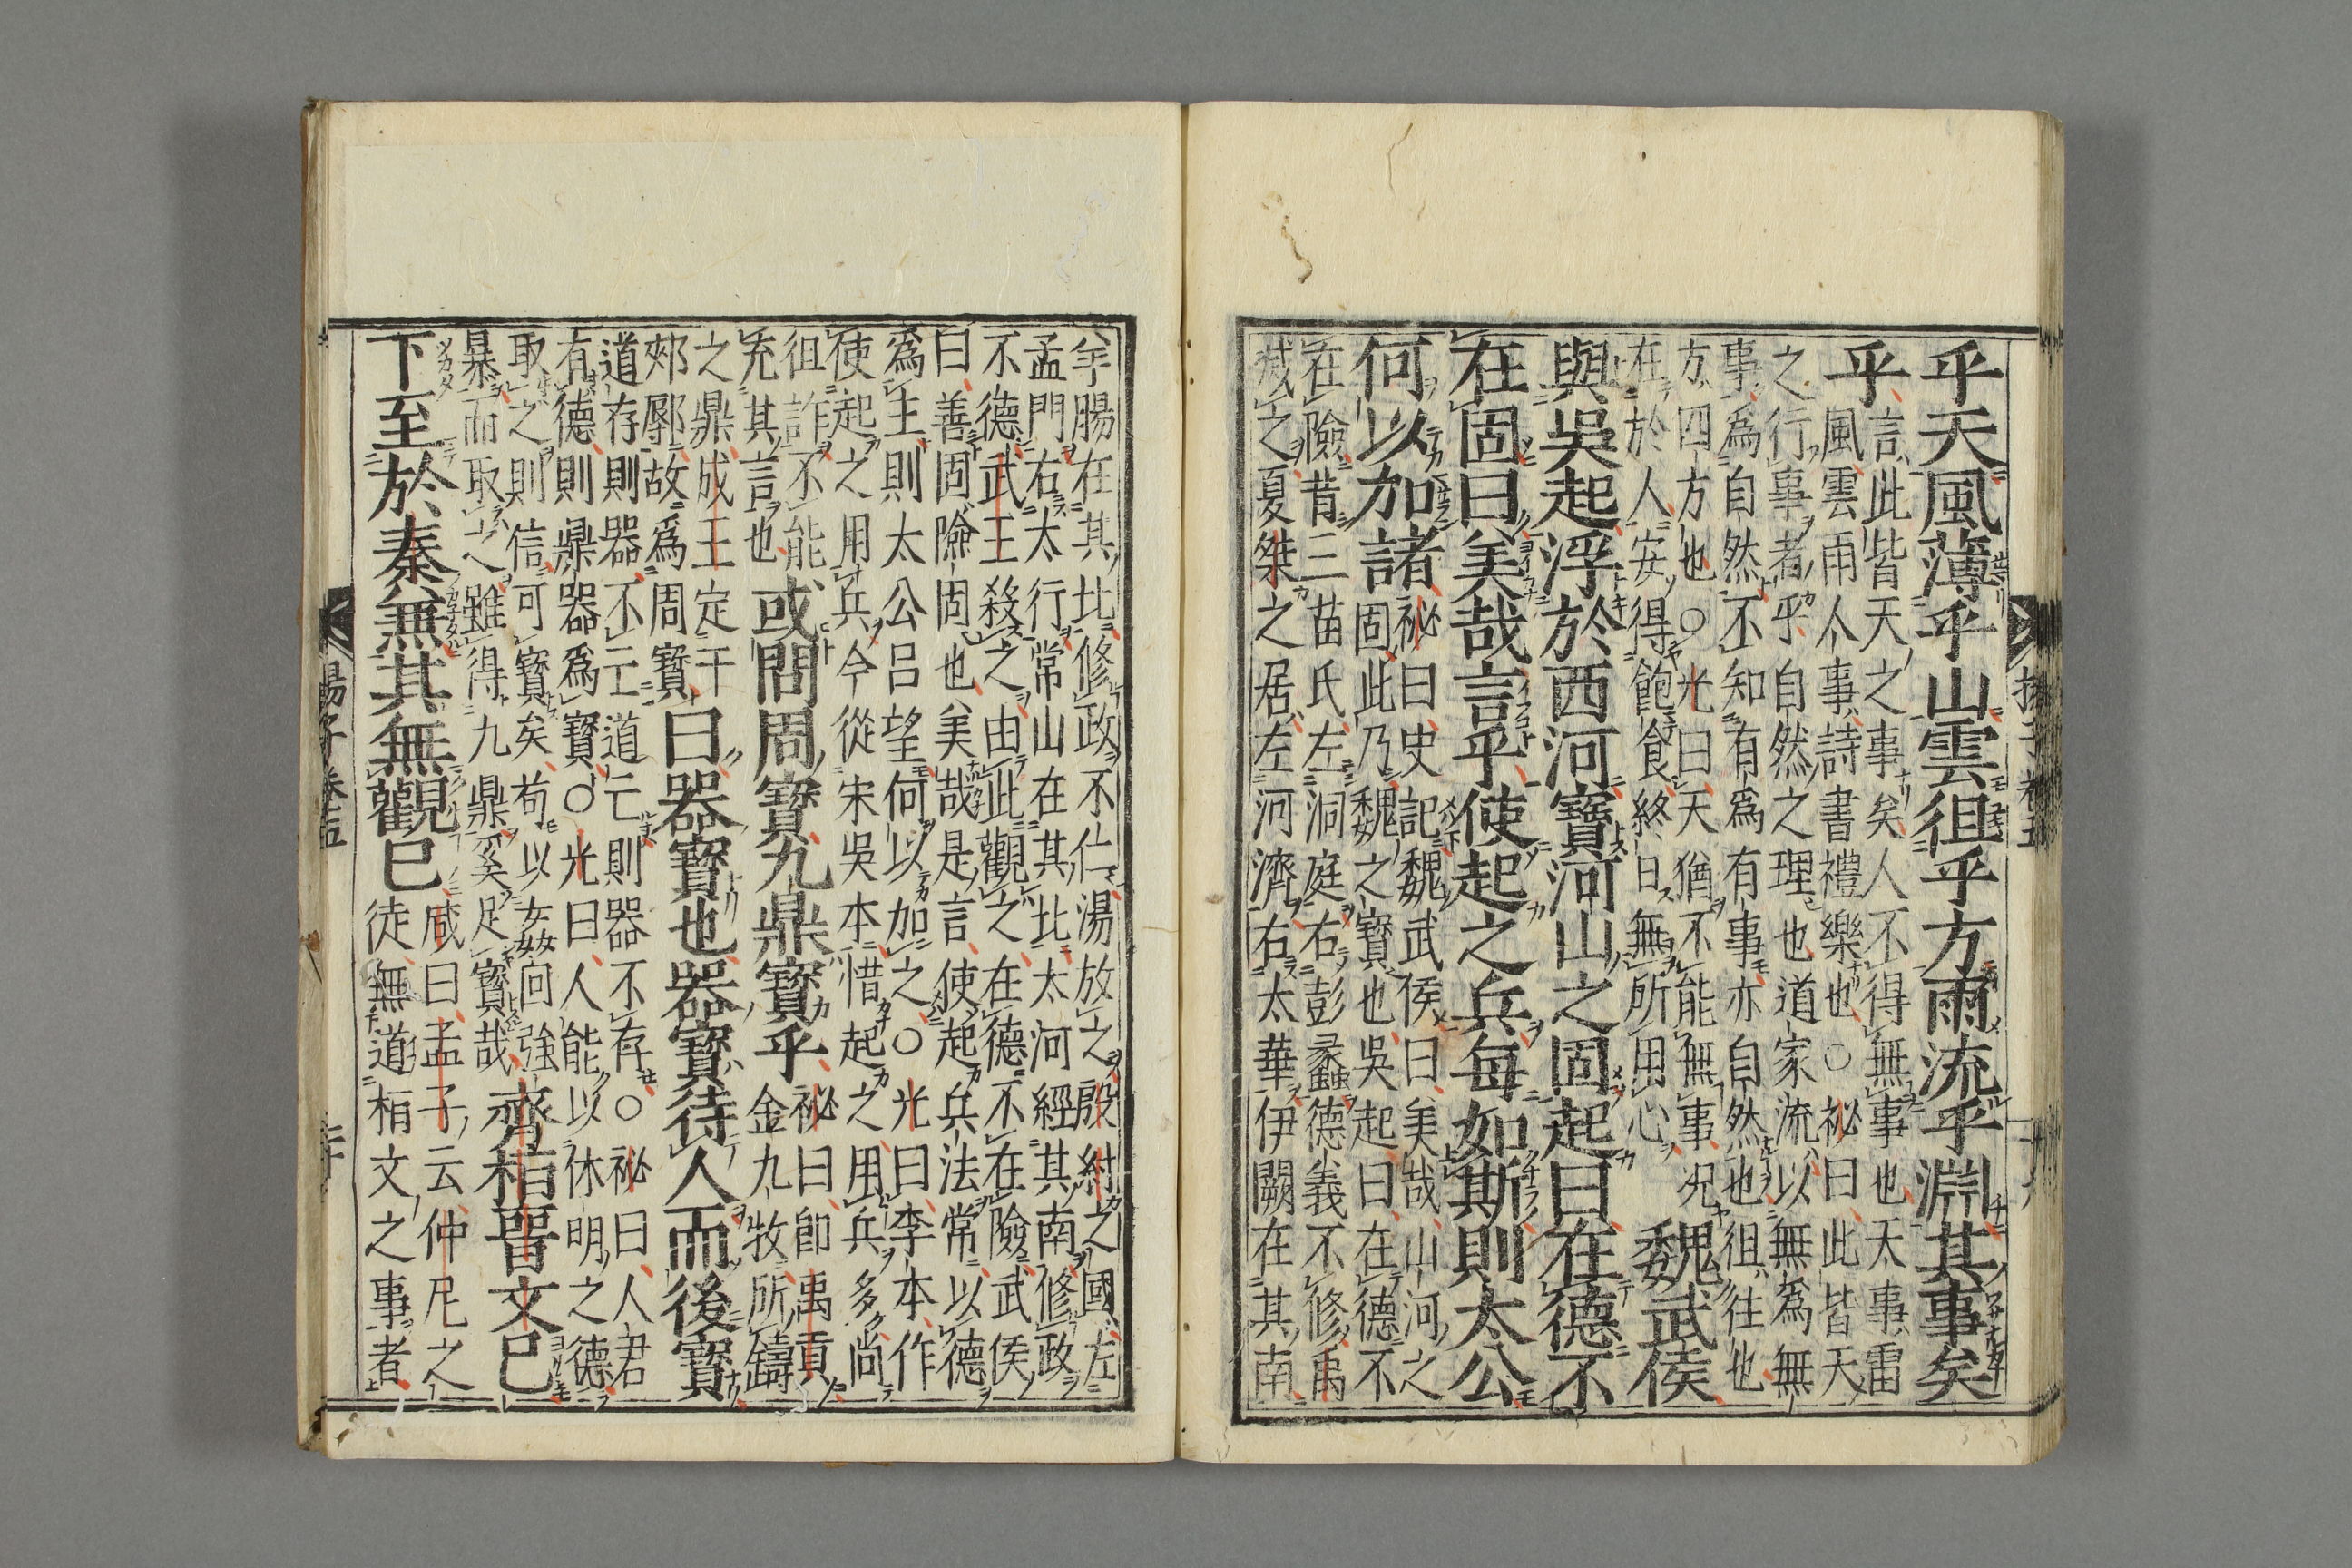 乎天風薄乎山雲徂乎方雨流乎淵其事矣
乎
言此皆天之事矣人不得無事也天事雷
風雲雨人事詩書禮樂也○祕曰此皆天
之行事者乎自然之理也道家流以無為無
事為自然不知有為有事亦自然也徂往也
方四方也○光曰天猶不能無事況
在於人安得飽食終日無所用心
魏武侯
與吳起浮於西河寶河山之固起曰在德不
在固曰美哉言乎使起之兵每如斯則太公
何以加諸
祕曰史記魏武侯曰美哉山河之
固此乃魏之寶也吳起曰在德不
在險昔三苗氏左洞庭右彭蠡德義不修禹
滅之夏桀之居左河濟右太華伊闕在其南
羊腸在其北修政不仁湯放之殷紂之國左
孟門右太行常山在其北太河經其南修政
不德武王殺之由此觀之在德不在險武侯
曰善固險固也美哉是言使起兵法常以德
為主則太公呂望何以加之○光曰李本作
使起之用兵今從宋吳本惜起之用兵多尚
徂詐不能
充其言也
或問周寶九鼎寶乎
祕曰卽禹貢
金九牧所鑄
之鼎成王定于
郟鄏故為周寶
曰器寶也器寶待人而後寶
道存則器不亡道亡則器不存○祕曰人君
有德則鼎器為寶○光曰人能以休明之德
取之則信可寶矣苟以姦回強
暴而取之雖得九鼎奚足寶哉
齊桓晉文已
下至於秦兼其無觀已
咸曰孟子云仲尼之
徒無道桓文之事者
揚子卷五
楊子卷五